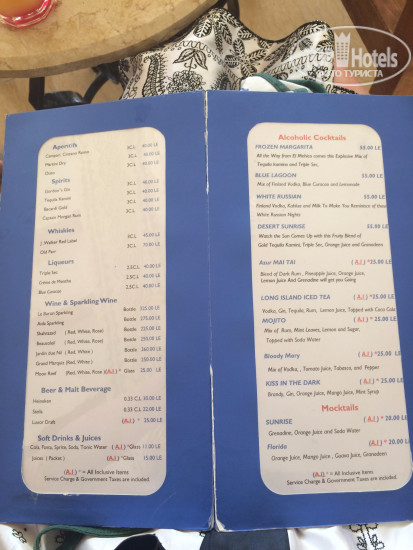 Hotels
ФОТО ТУРИСТА
Aperitifs
Campari, Cinzano Rosso 3CL 40.00 LE
Martini Dry, 3CL 40.00 LE
Ouzo 3CL 60.00 LE
Spirits
Gordon's Gin 3CL 40.00 LE
Tequila Kamini 3CL 40.00 LE
Bacardi Gold 3CL 40.00 LE
Classic Morgan Rum 3CL 40.00 LE
Whiskies
J. Walker Red Label 3CL 40.00 LE
Old Parr 3CL 70.00 LE
Liqueurs
Triple Sec 2.5CL 40.00 LE
Crème de Menthe 2.5CL 40.00 LE
Blue Curacao 2.5CL 40.00 LE
Wine & Sparkling Wine
Le Baron Sparkling Bottle 320.00 LE
Aida Sparkling Bottle 275.00 LE
Shahrazad (Red, White, Rose) Bottle 225.00 LE
Beausoleil (Red, White, Rose) Bottle 250.00 LE
Jardin due Nil (Red, White) Bottle 260.00 LE
Grand Marquis (Red, White) Bottle 350.00 LE
Moon Reef (Red, White, Rose) (A.I.) * Glass 25.00 LE
Beer & Malt Beverage
Heineken 0.33 CL 30.00 LE
Stella 0.33 CL 22.00 LE
Luxor Draft (A.I.) * 20.00 LE
Soft Drinks & Juices
Cola, Fanta, Sprite, Soda, Tonic Water (A.I.) *Glass 15.00 LE
Juices ( Packet ) (A.I.) *Glass 15.00 LE
(A.I.) * = All Inclusive Items
Service Charge & Government Taxes are included.
Alcoholic Cocktails
FROZEN MARGARITA 55.00 LE
All the Way from El Mexico comes this Explosive Mix of
Tequila kamino and Triple Sec,
BLUE LAGOON 55.00 LE
Mix of Finland Vodka, Blue Curacao and Lemonade
WHITE RUSSIAN 55.00 LE
Finland Vodka, Kahlua and Milk To Make You Reminisce of those
White Russian Nights
DESERT SUNRISE 55.00 LE
Watch the Sun Comes Up with this Fruity Blend of
Gold Tequila Kamino, Triple Sec, Orange Juice and Grenadine
Azur MAI TAI (A.I.) *25.00 LE
Blend of Dark Rum , Pineapple Juice, Orange Juice,
Lemon Juice And Grenadine will get you Going
LONG ISLAND ICED TEA (A.I.) *25.00 LE
Vodka, Gin, Tequila, Rum, Lemon Juice, Topped with Coca Cola
MOJITO (A.I.) *25.00 LE
Mix of Rum, Mint Leaves, Lemon and Sugar,
Topped with Soda Water
Bloody Mary (A.I.) *25.00 LE
Mix of Vodka , Tomato Juice, Tabasco, and Pepper
KISS IN THE DARK (A.I.) *25.00 LE
Brandy, Gin, Orange Juice, Mango Juice, Mint Syrup
Mocktails
SUNRISE (A.I.) * 20.00 LE
Grenadine, Orange Juice and Soda Water
Florida (A.I.) * 20.00 LE
Orange Juice, Mango Juice , Guava Juice, Grenadine
(A.I.) * = All Inclusive Items
Service Charge & Government Taxes are included.